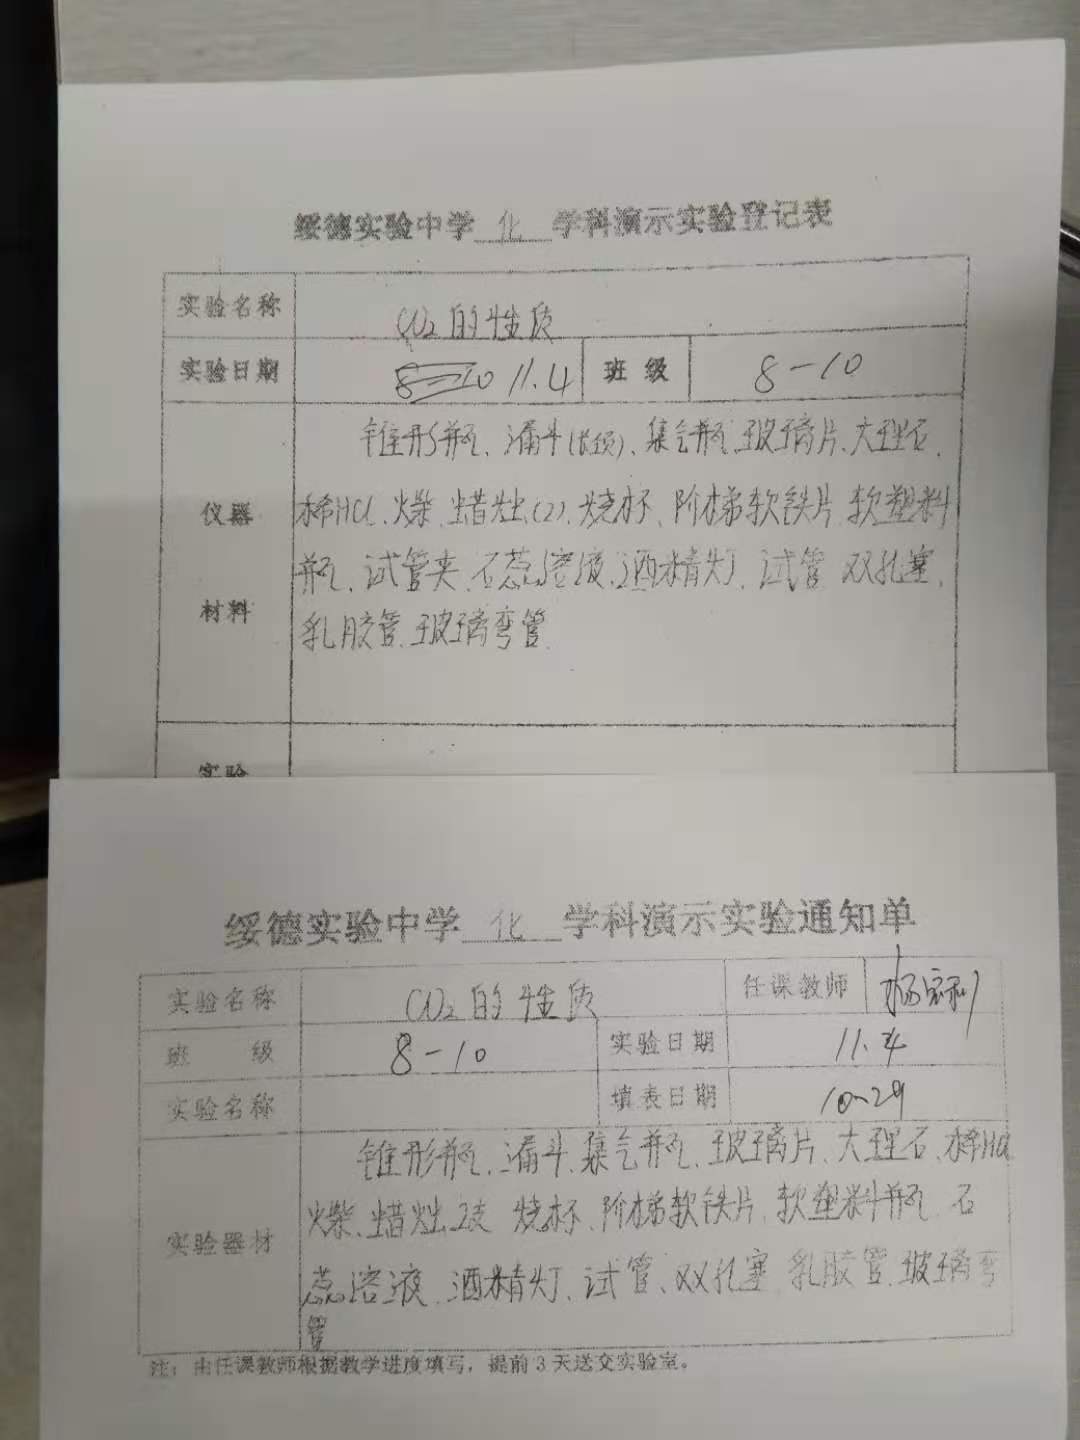 绥德实验中学 化 学科演示实验登记表
实验名称 CO₂的性质
实验日期 11.4 班级 8-10
锥形瓶、漏斗(长颈)、集气瓶、玻璃片、大理石、
仪器 稀HCl、火柴、蜡烛(2)、烧杯、阶梯软铁片、软塑料
瓶、试管夹、石蕊溶液、酒精灯、试管、双孔塞、
材料 乳胶管、玻璃弯管
实验
绥德实验中学 化 学科演示实验通知单
实验名称 CO₂的性质 任课教师 杨
班 级 8-10 实验日期 11.4
实验名称 填表日期 10-29
锥形瓶、漏斗、集气瓶、玻璃片、大理石、稀HCl
火柴、蜡烛2支 烧杯、阶梯软铁片、软塑料瓶、石
实验器材 蕊溶液、酒精灯、试管、双孔塞、乳胶管、玻璃弯
管
注：由任课教师根据教学进度填写，提前3天送交实验室。